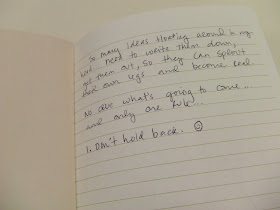 So many ideas floating around in my
head. need to write them down,
get them out, so they can sprout
their own legs and become real.
No idea what's going to come...
and only one rule...
1. Don't hold back. ☺